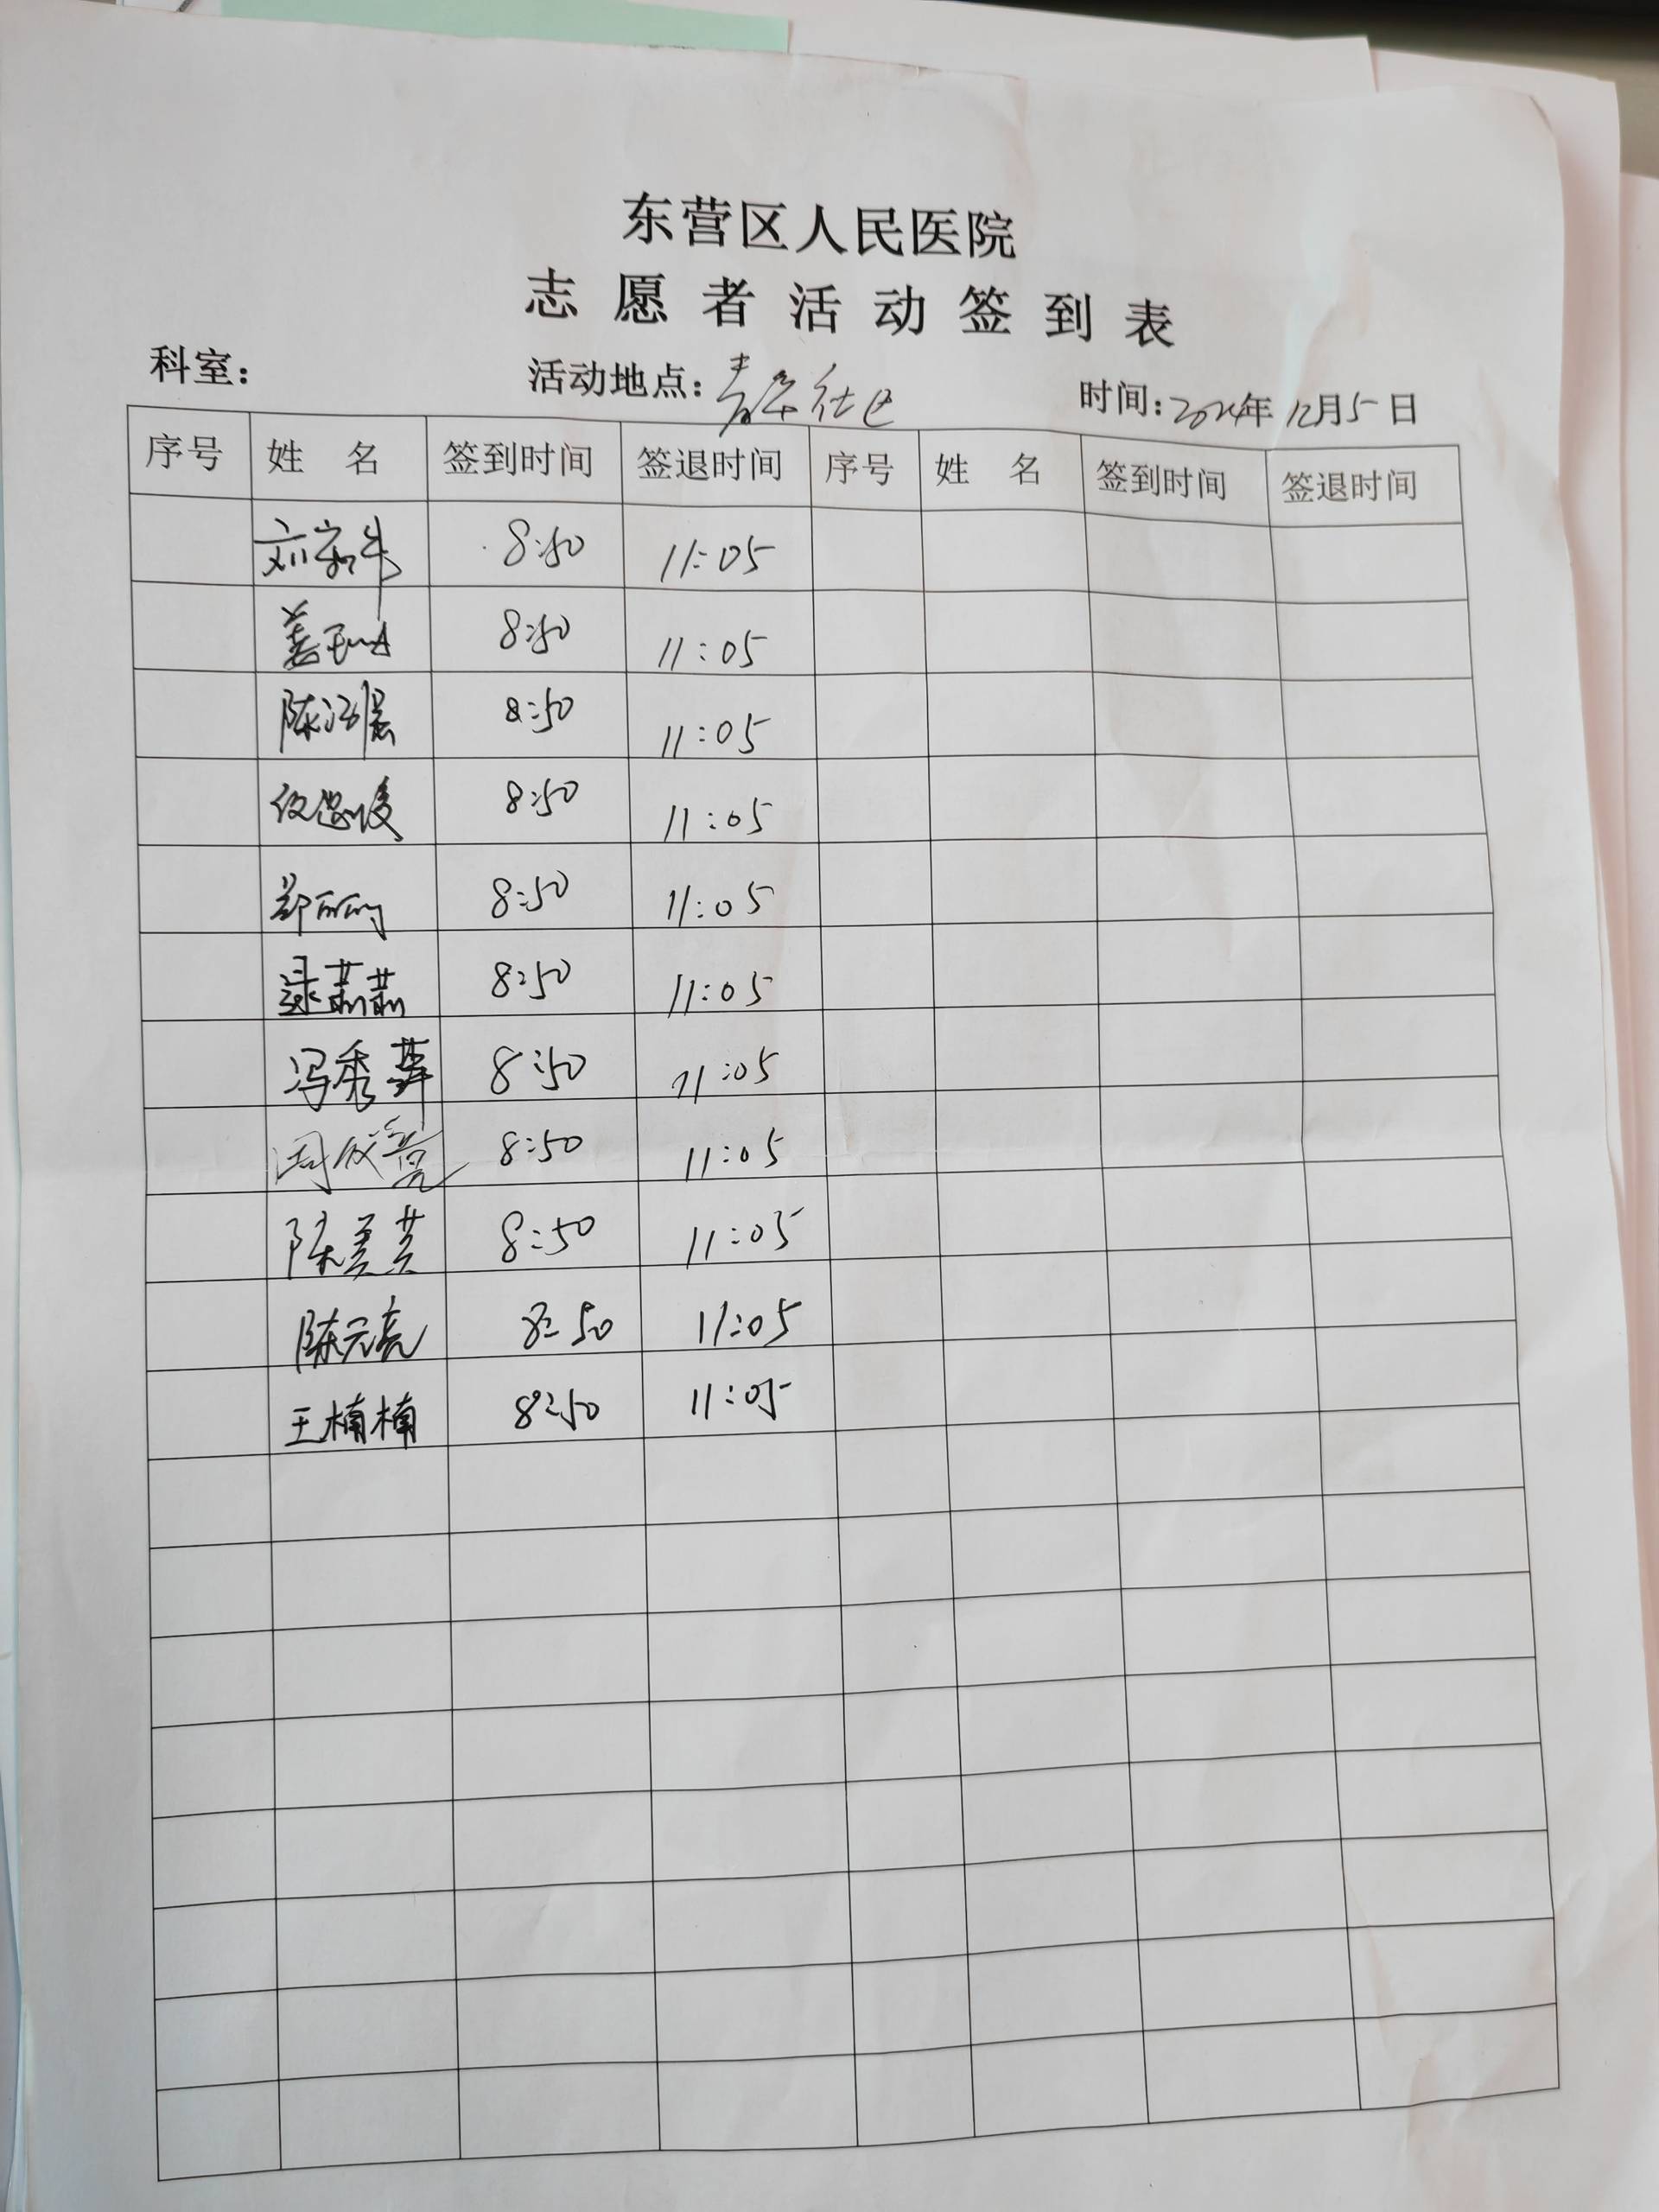 东营区人民医院
志愿者活动签到表
科室： 活动地点： 社区 时间：2024年12月5日
序号 姓 名 签到时间 签退时间 序号 姓 名 签到时间 签退时间
8:50 11:05
8:50 11:05
8:50 11:05
8:50 11:05
郑丽丽 8:50 11:05
逯燕燕 8:50 11:05
冯秀萍 8:50 11:05
8:50 11:05
陈美芸 8:50 11:05
陈元亮 8:50 11:05
王楠楠 8:50 11:05